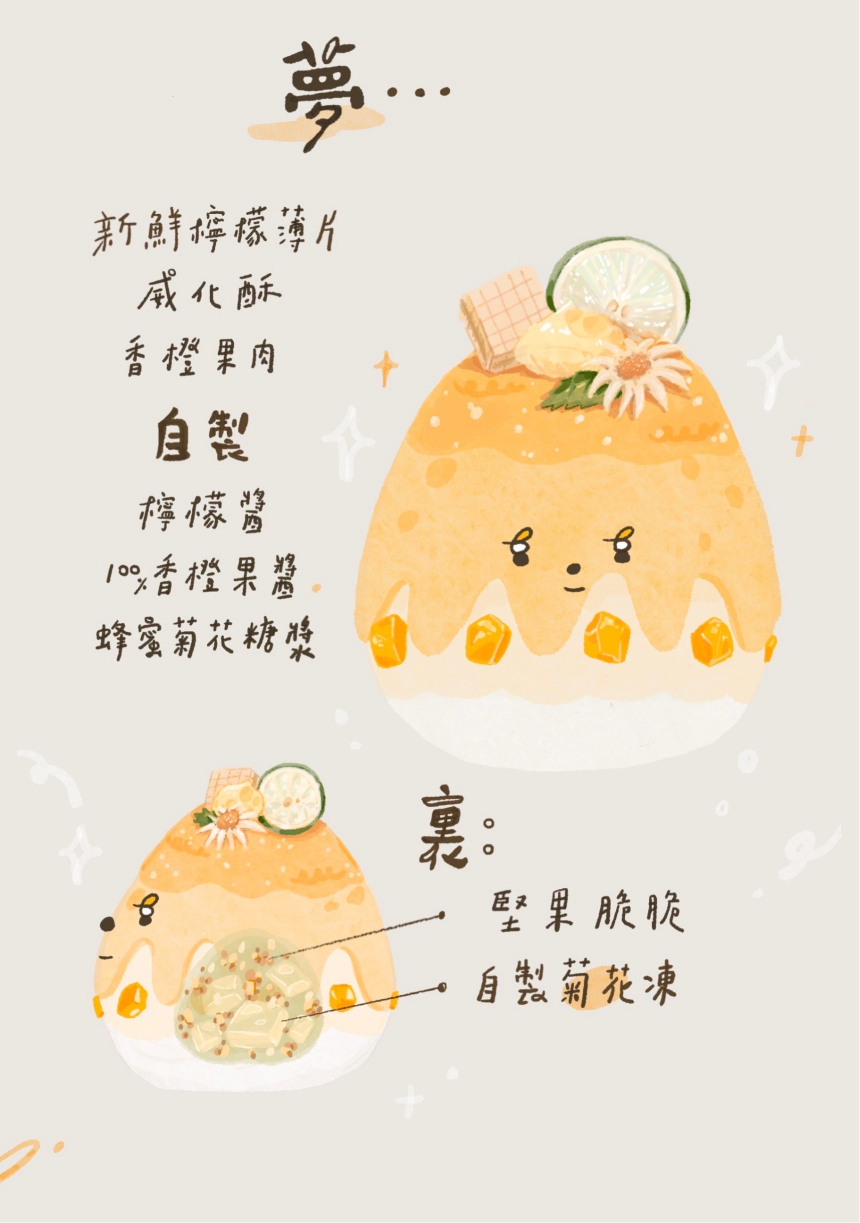 夢...
新鮮檸檬薄片
威化酥
香橙果肉
自製
檸檬醬
100%香橙果醬
蜂蜜菊花糖漿
裏：
堅果脆脆
自製菊花凍